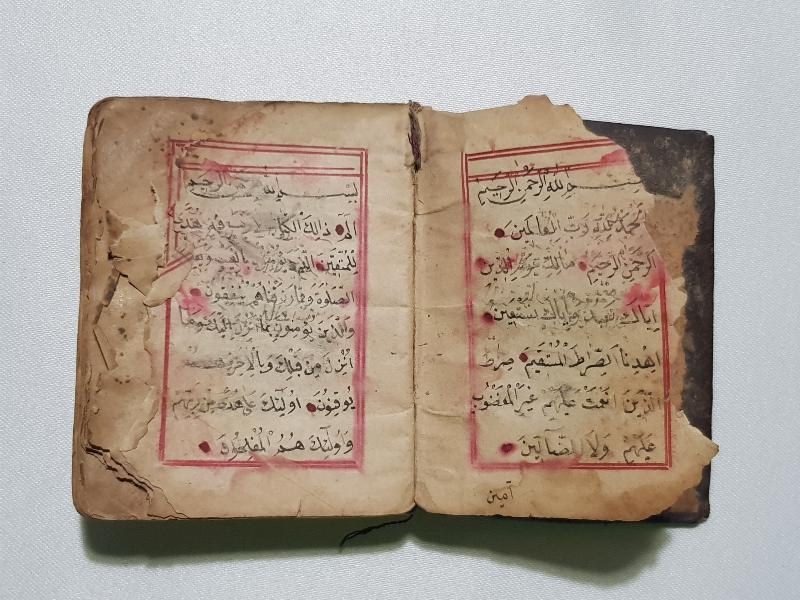 بسم الله الرحمن الرحيم
الحمد لله رب العالمين
الرحمن الرحيم مالك يوم الدين
اياك نعبد واياك نستعين
اهدنا الصراط المستقيم صراط
الذين انعمت عليهم غير المغضوب
عليهم ولا الضآلين
آمين
بسم الله الرحمن الرحيم
الم ذالك الكتاب لا ريب فيه هدى
للمتقين الذين يؤمنون بالغيب
الصلوة ومما رزقناهم ينفقون
والذين يؤمنون بما انزل اليك وما
انزل من قبلك وبالاخرة هم
يوقنون اولئك على هدى من ربهم
واولئك هم المفلحون